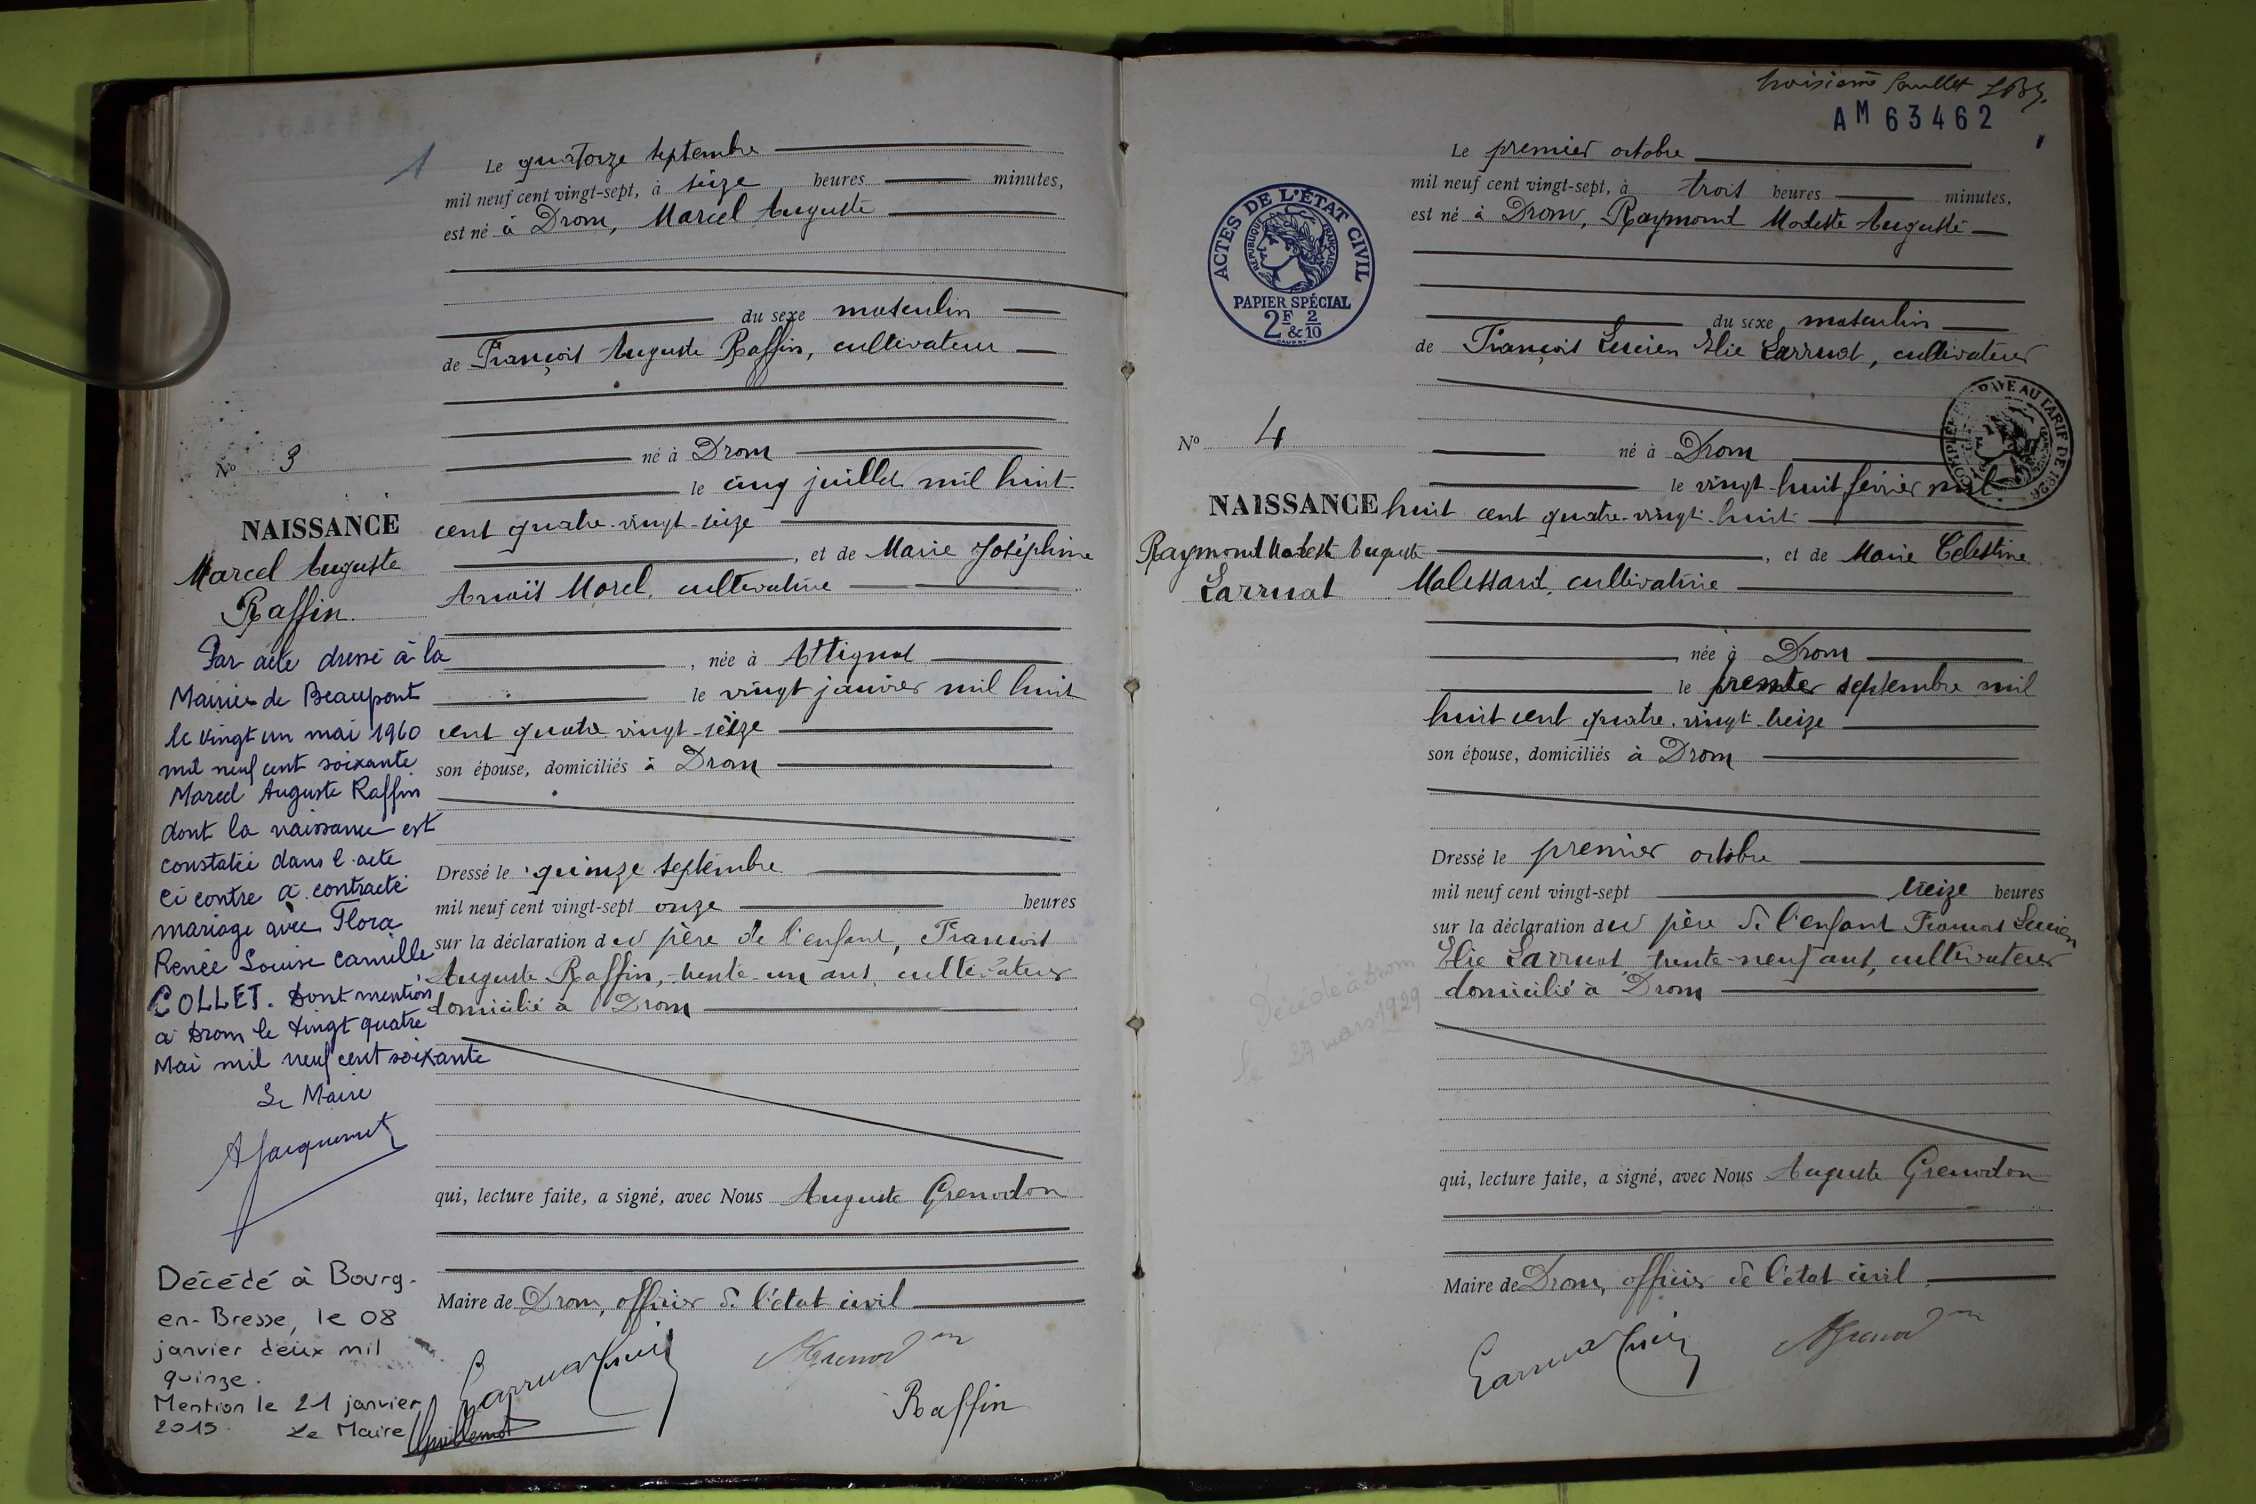 1
Le quatorze septembre
mil neuf cent vingt-sept, à seize heures minutes,
est né à Drom, Marcel Auguste
du sexe masculin
de François Auguste Raffin, cultivateur
né à Drom
le cinq juillet mil huit
cent quatre-vingt-seize
, et de Marie Joséphine
Anaïs Morel, cultivatrice
, née à Attignat
le vingt janvier mil huit
cent quatre vingt-seize
son épouse, domiciliés à Drom
Dressé le quinze septembre
mil neuf cent vingt-sept onze heures
sur la déclaration du père de l'enfant, François
Auguste Raffin, trente-un ans, cultivateur
domicilié à Drom
qui, lecture faite, a signé, avec Nous Auguste Grenodon
Maire de Drom, officier de l'état civil
Raffin
No 3
NAISSANCE
Marcel Auguste
Raffin.
Par acte dressé à la
Mairie de Beaupont
le vingt un mai 1960
mil neuf cent soixante
Marcel Auguste Raffin
dont la naissance est
constatée dans l'acte
ci contre a contracté
mariage avec Flora
Renée Louise Camille
COLLET. Dont mention
à Drom le vingt quatre
Mai mil neuf cent soixante
Le Maire
AJacquemet
Décédé à Bourg-
en-Bresse, le 08
janvier deux mil
quinze.
Mention le 21 janvier
2015. Le Maire
Guillemot
troisième feuillet
AM 63462
ACTES DE L'ÉTAT CIVIL
RÉPUBLIQUE FRANÇAISE
PAPIER SPÉCIAL
2F & 2/10
Le premier octobre
mil neuf cent vingt-sept, à trois heures minutes,
est né à Drom, Raymond Modeste Auguste
du sexe masculin
de François Lucien Elie Larruat, cultivateur
PAYÉ AU TARIF DE 1926
né à Drom
le vingt-huit février mil
huit cent quatre-vingt-huit
, et de Marie Celestine
Malessard, cultivatrice
née à Drom
le premier septembre mil
huit cent quatre-vingt-treize
son épouse, domiciliés à Drom
Dressé le premier octobre
mil neuf cent vingt-sept treize heures
sur la déclaration du père de l'enfant François Lucien
Elie Larruat, trente-neuf ans, cultivateur
domicilié à Drom
qui, lecture faite, a signé, avec Nous Auguste Grenodon
Maire de Drom, officier de l'état civil
No 4
NAISSANCE
Raymond Modeste Auguste
Larruat
Décédé à Drom
le 27 mars 1929